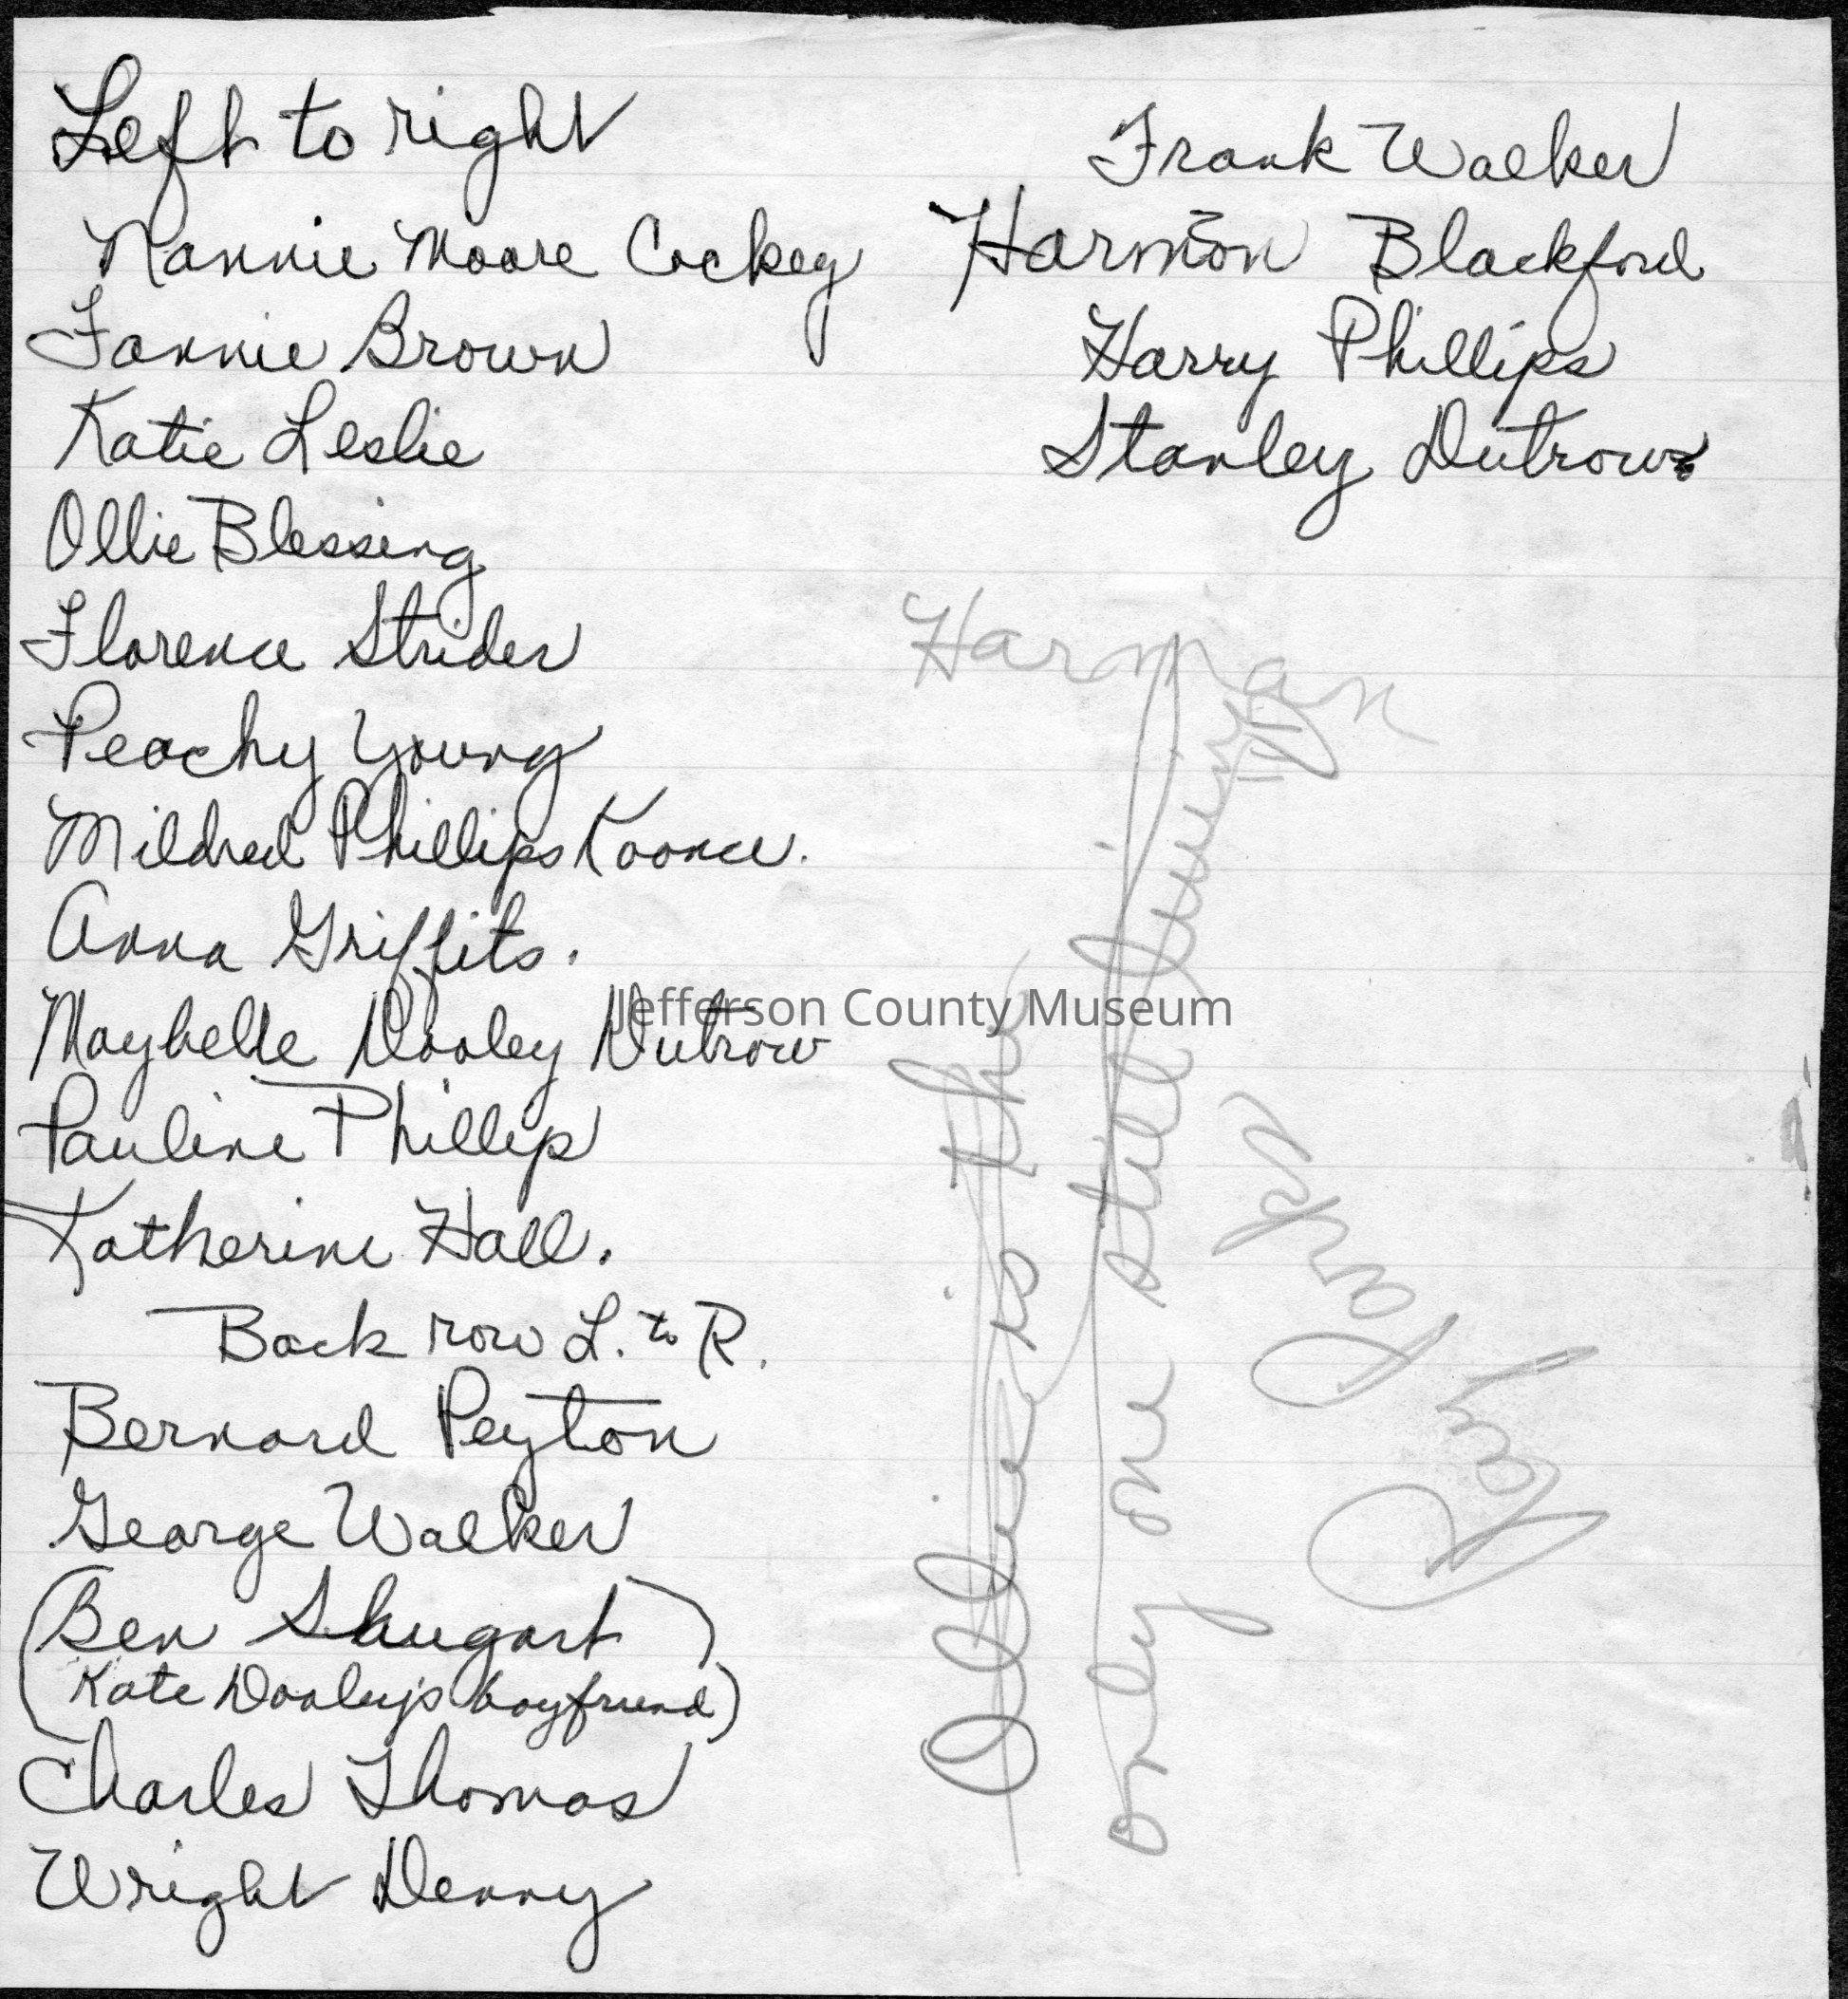 Left to right
Nannie Moore Cockey
Fannie Brown
Katie Leslie
Ollie Blessing
Florence Strider
Peachy Young
Mildred Phillips Koonce.
Anna Griffits.
Maybelle Dooley Dutrow
Pauline Phillip
Katherine Hall.
Back row L. to R.
Bernard Peyton
George Walker
(Ben Shugart)
(Kate Dooley's boyfriend)
Charles Thomas
Wright Denny
Frank Walker
Harmon Blackford
Harry Phillips
Stanley Dutrow
Harman
Ollie is the
only one still living
Jefferson County Museum